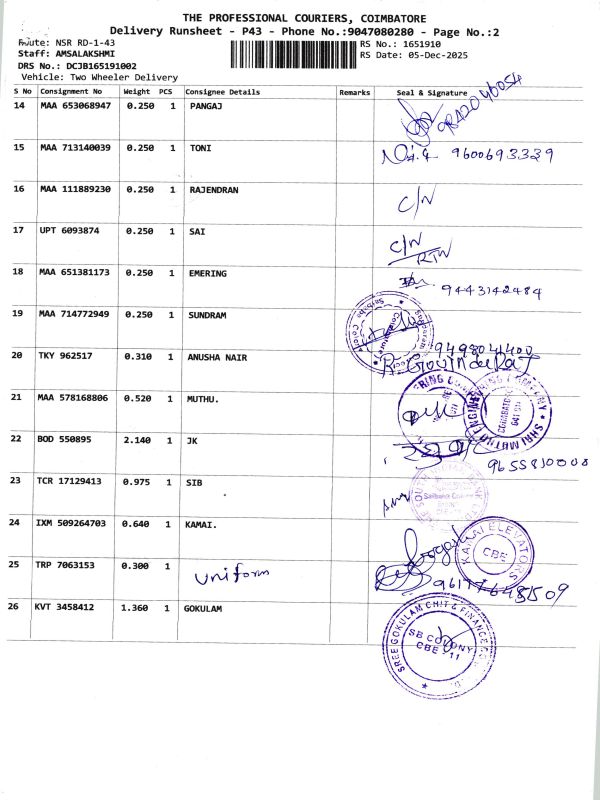 THE PROFESSIONAL COURIERS, COIMBATORE
Delivery Runsheet - P43 - Phone No.:9047080280 - Page No.:2
Route: NSR RD-1-43
RS No.: 1651910
Staff: AMSALAKSHMI
RS Date: 05-Dec-2025
DRS No.: DCJB165191002
Vehicle: Two Wheeler Delivery
S No Consignment No Weight PCS Consignee Details Remarks Seal & Signature
14 MAA 653068947 0.250 1 PANGAJ
15 MAA 713140039 0.250 1 TONI 9600693339
16 MAA 111889230 0.250 1 RAJENDRAN C/N
17 UPT 6093874 0.250 1 SAI C/N
RTN
18 MAA 651381173 0.250 1 EMERING 9443142484
19 MAA 714772949 0.250 1 SUNDRAM
20 TKY 962517 0.310 1 ANUSHA NAIR
21 MAA 578168806 0.520 1 MUTHU. SHRI MUTHU ENGINEERING COMPANY
22 BOD 550895 2.140 1 JK 9655810008
23 TCR 17129413 0.975 1 SIB
24 IXM 509264703 0.640 1 KAMAI. KAMAI ELEVATORS CBE
25 TRP 7063153 0.300 1 Uniform
26 KVT 3458412 1.360 1 GOKULAM SREE GOKULAM CHIT & FINANCE
SB COLONY
CBE - 11